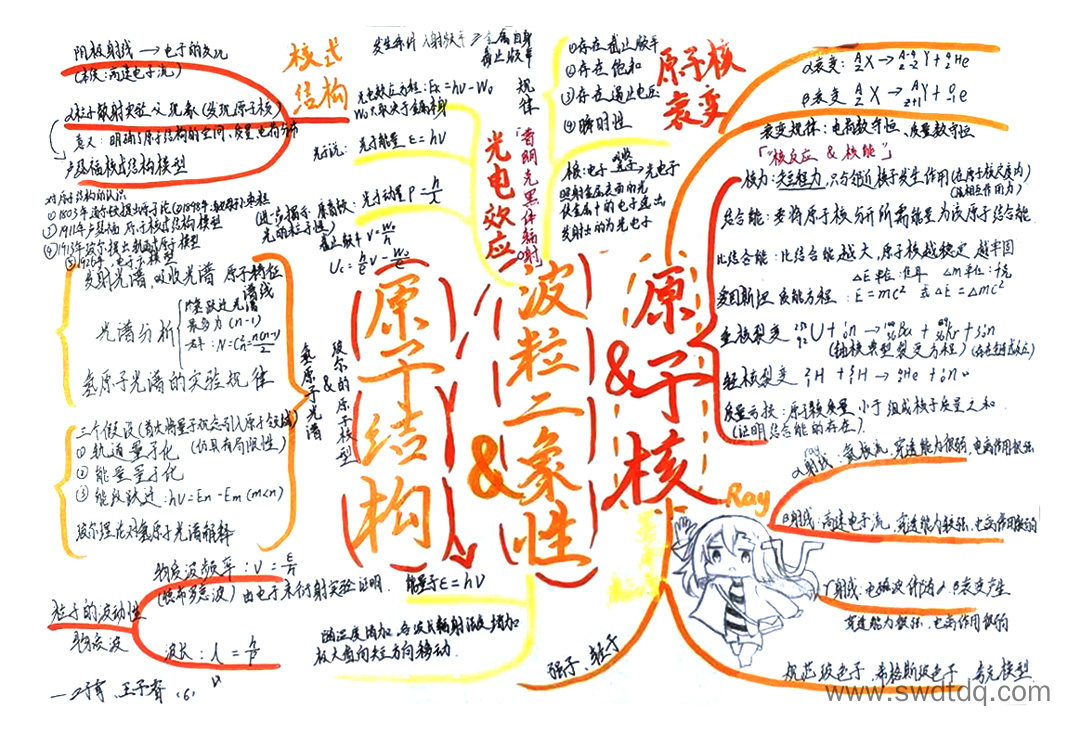 阴极射线 → 电子的发现
(本质:高速电子流)
α粒子散射实验 现象 (发现原子核)
意义:明确了原子结构的空间、质量、电荷分布
卢瑟福核式结构模型
核式
结构
对原子结构的认识
① 1803年道尔顿提出原子论
③ 1911年卢瑟福 原子核式结构模型
④ 1913年玻尔提出轨道式原子
模型
发射光谱、吸收光谱 原子特征
谱线
光谱分析
(n-1)
N = C²n = n(n-1)/2
氢原子光谱的实验规律
三个假设
① 轨道量子化 (仍具有局限性)
② 能量量子化
③ 能级跃迁:hν=En-Em (m<n)
玻尔理论对氢原子光谱解释
氢原子光谱
&
玻尔的原子模型
发生条件 入射频率 ≥ 金属自身
截止频率
光电效应方程:Ek=hν-W₀
W₀取决于金属本身
光子说: 光子能量 ε=hν
康普顿:光子动量 P=h/λ
光的粒子性)
截止频率 ν=W₀/h
光电效应
规律
①存在截止频率
②存在饱和
③存在遏止电压
④瞬时性
本质:电子 → 光电子
照射金属表面的光
使金属中的电子逸出
发射出的为光电子
原子核
衰变
α衰变:
β衰变:
衰变规律:电荷数守恒、质量数守恒
「"核反应 & 核能"」
核力:短程力,只与邻近核子发生作用
结合能:要将原子核分开所需能量为该原子结合能
比结合能:比结合能越大,原子核越稳定 越牢固
爱因斯坦 质能方程:E=mc² 或 ΔE=Δmc²
重核裂变
轻核裂变
质量亏损:原子核质量,小于组成核子质量之和
(证明结合能的存在)
原子结构
&
波粒二象性
&
原子核
Ray
α射线:氦核流,穿透能力很弱,电离作用很强
β射线:高速电子流,穿透能力较强,电离作用较弱
γ射线:电磁波 伴随α、β衰变产生
穿透能力很强,电离作用很弱
强子、轻子
规范玻色子、希格斯玻色子、夸克模型
粒子的波动性
物质波
物质波频率:ν=ε/h
(德布罗意波) 由电子束衍射实验证明
波长:λ=h/P
能量子ε=hν
随温度增加,各波长辐射强度增加
极大值向短方向移动
www.swdtdq.com